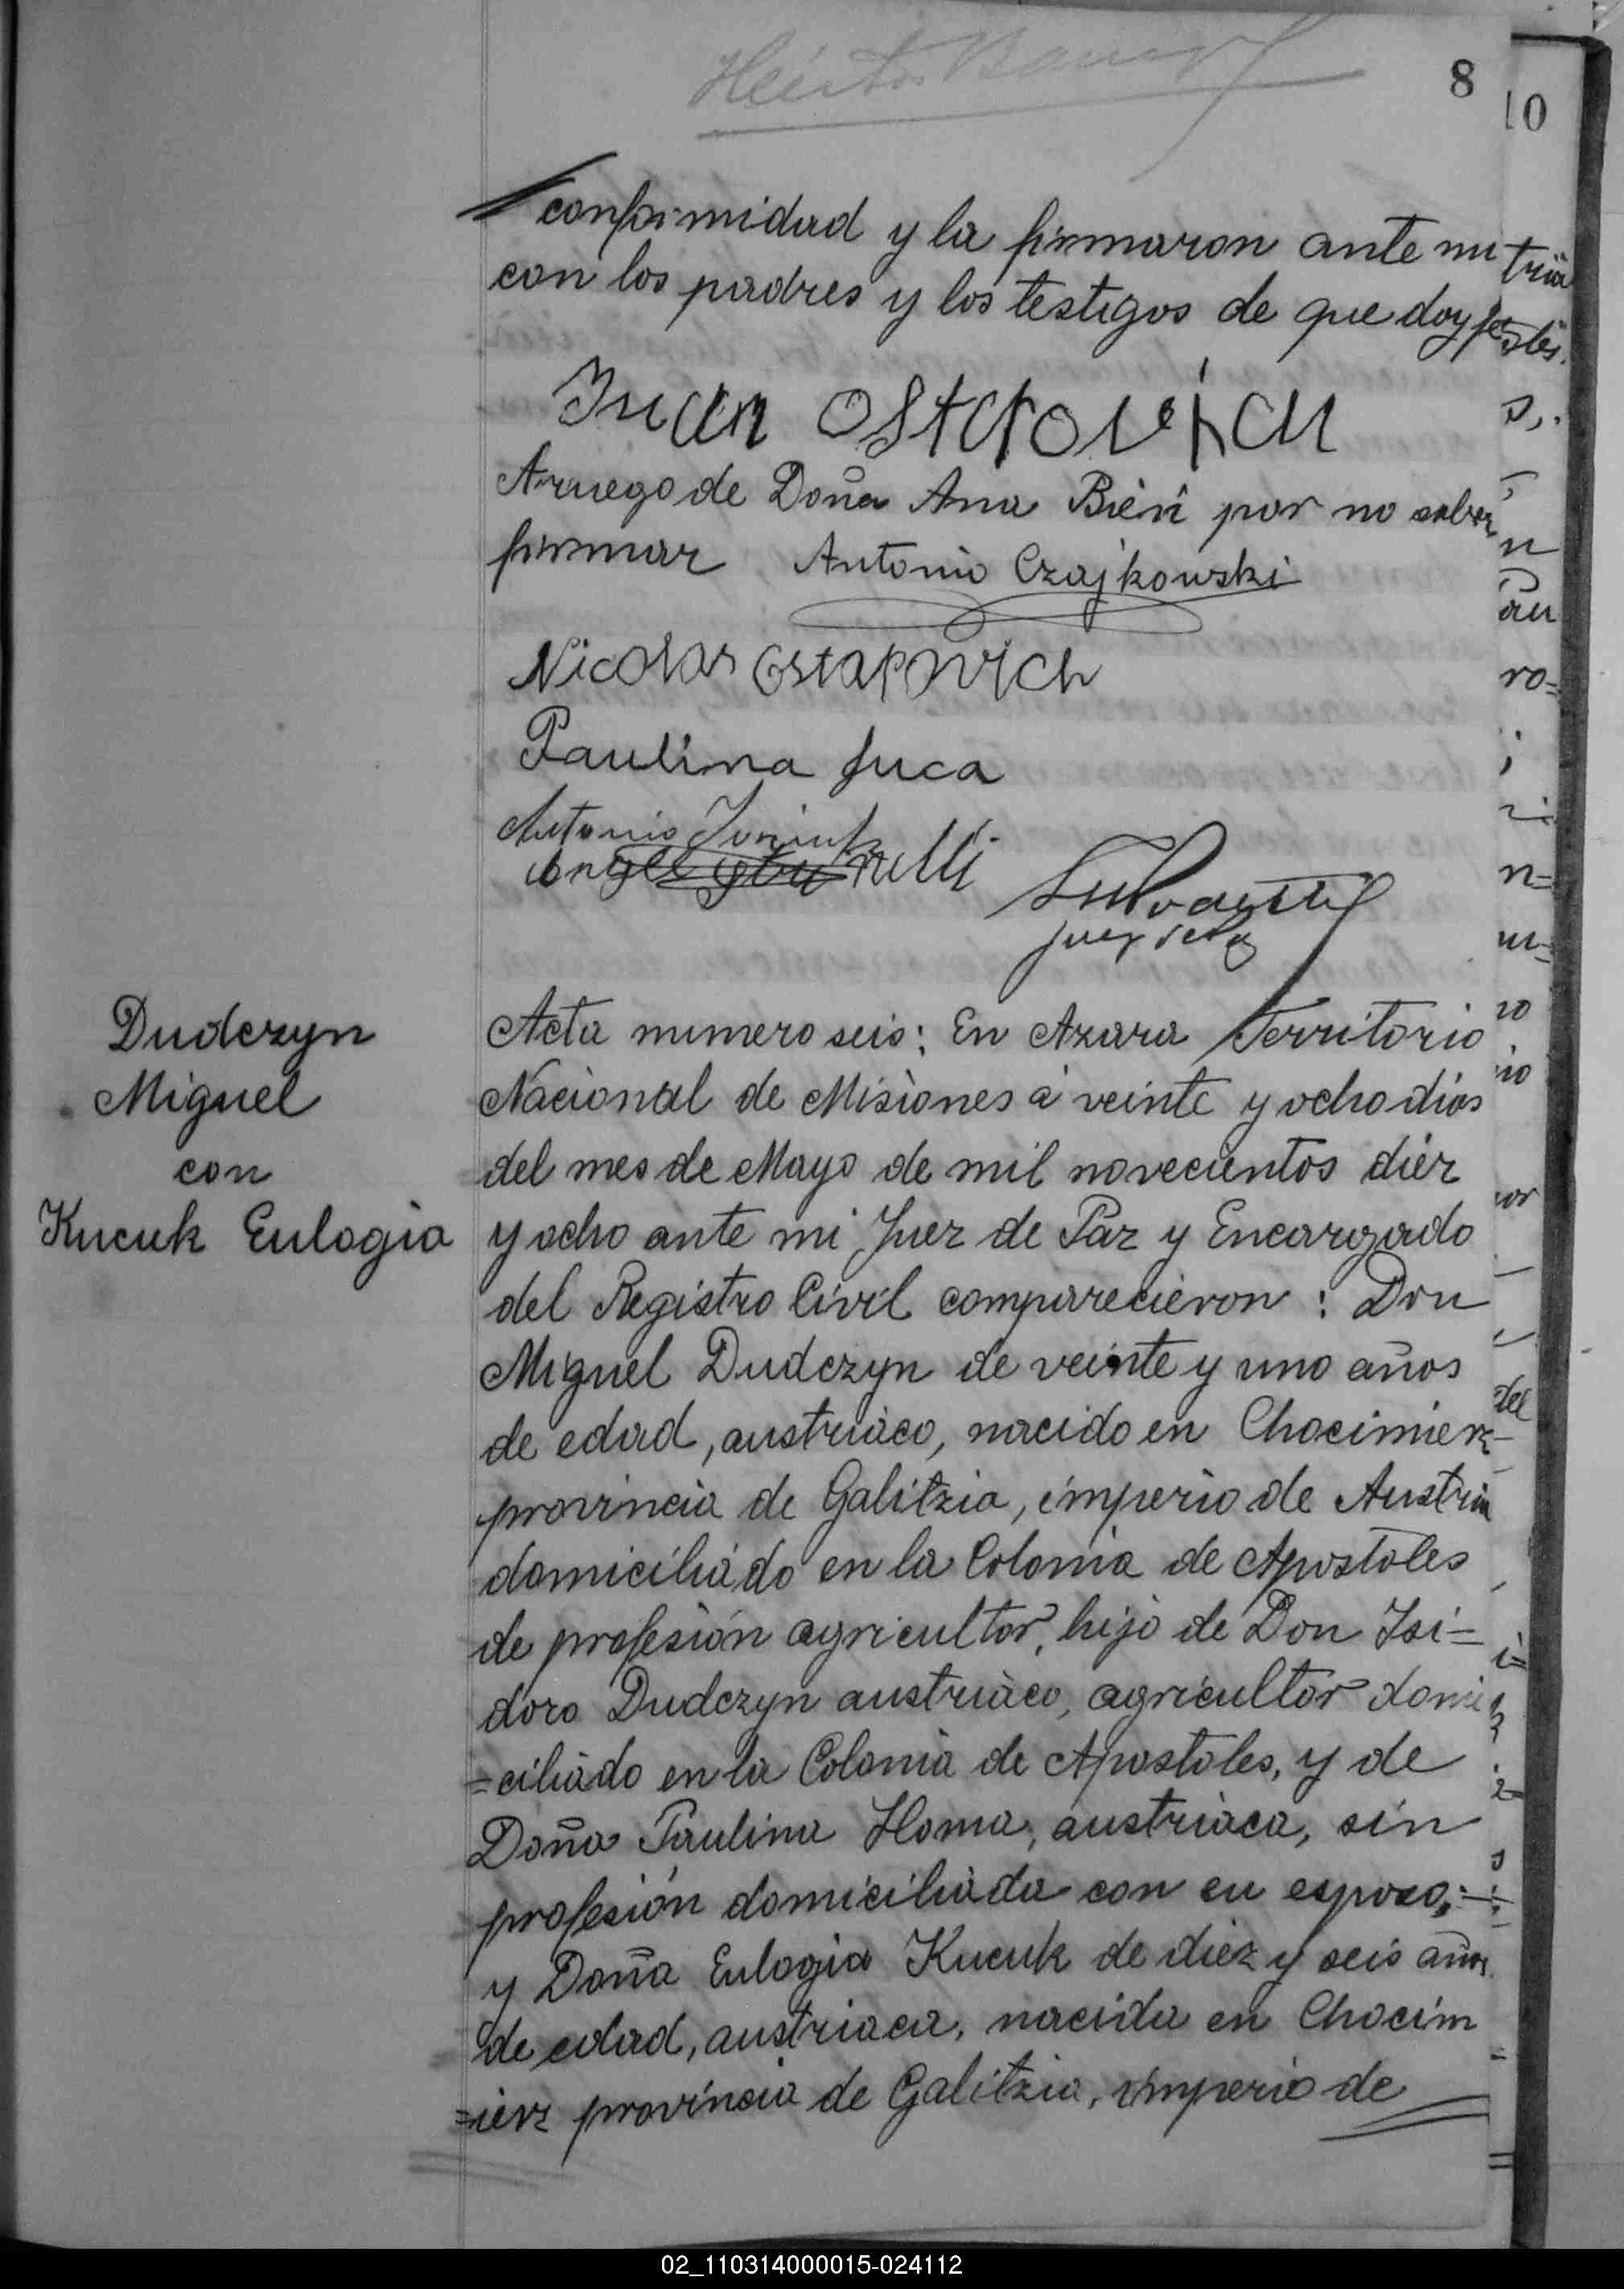 8
10
conformidad y la firmaron ante mi
con los padres y los testigos de que doy fe
Juan Ostapovich
A ruego de Doña Ana Bién por no saber
firmar Antonio Czajkowski
Nicolas Ostapovich
Paulina Juca
Antonio
Juez de Paz
Dudczyn
Miguel
con
Kucuk Eulogia
Acta numero seis: En Azara Territorio
Nacional de Misiones á veinte y ocho dias
del mes de Mayo de mil novecientos diéz
y ocho ante mi Juez de Paz y Encargado
del Registro Civil comparecieron: Don
Miguel Dudczyn de veinte y uno años
de edad, austriaco, nacido en Chocimierz
provincia de Galitzia, imperio de Austria
domiciliado en la Colonia de Apostoles
de profesión agricultor, hijo de Don Isi=
doro Dudczyn austriaco, agricultor domi
=ciliado en la Colonia de Apostoles, y de
Doña Paulina Homa, austriaca, sin
profesión domiciliada con su esposo;
y Doña Eulogia Kucuk de diez y seis años
de edad, austriaca, nacida en Chocim
=ierz provincia de Galitzia, imperio de
02_110314000015-024112